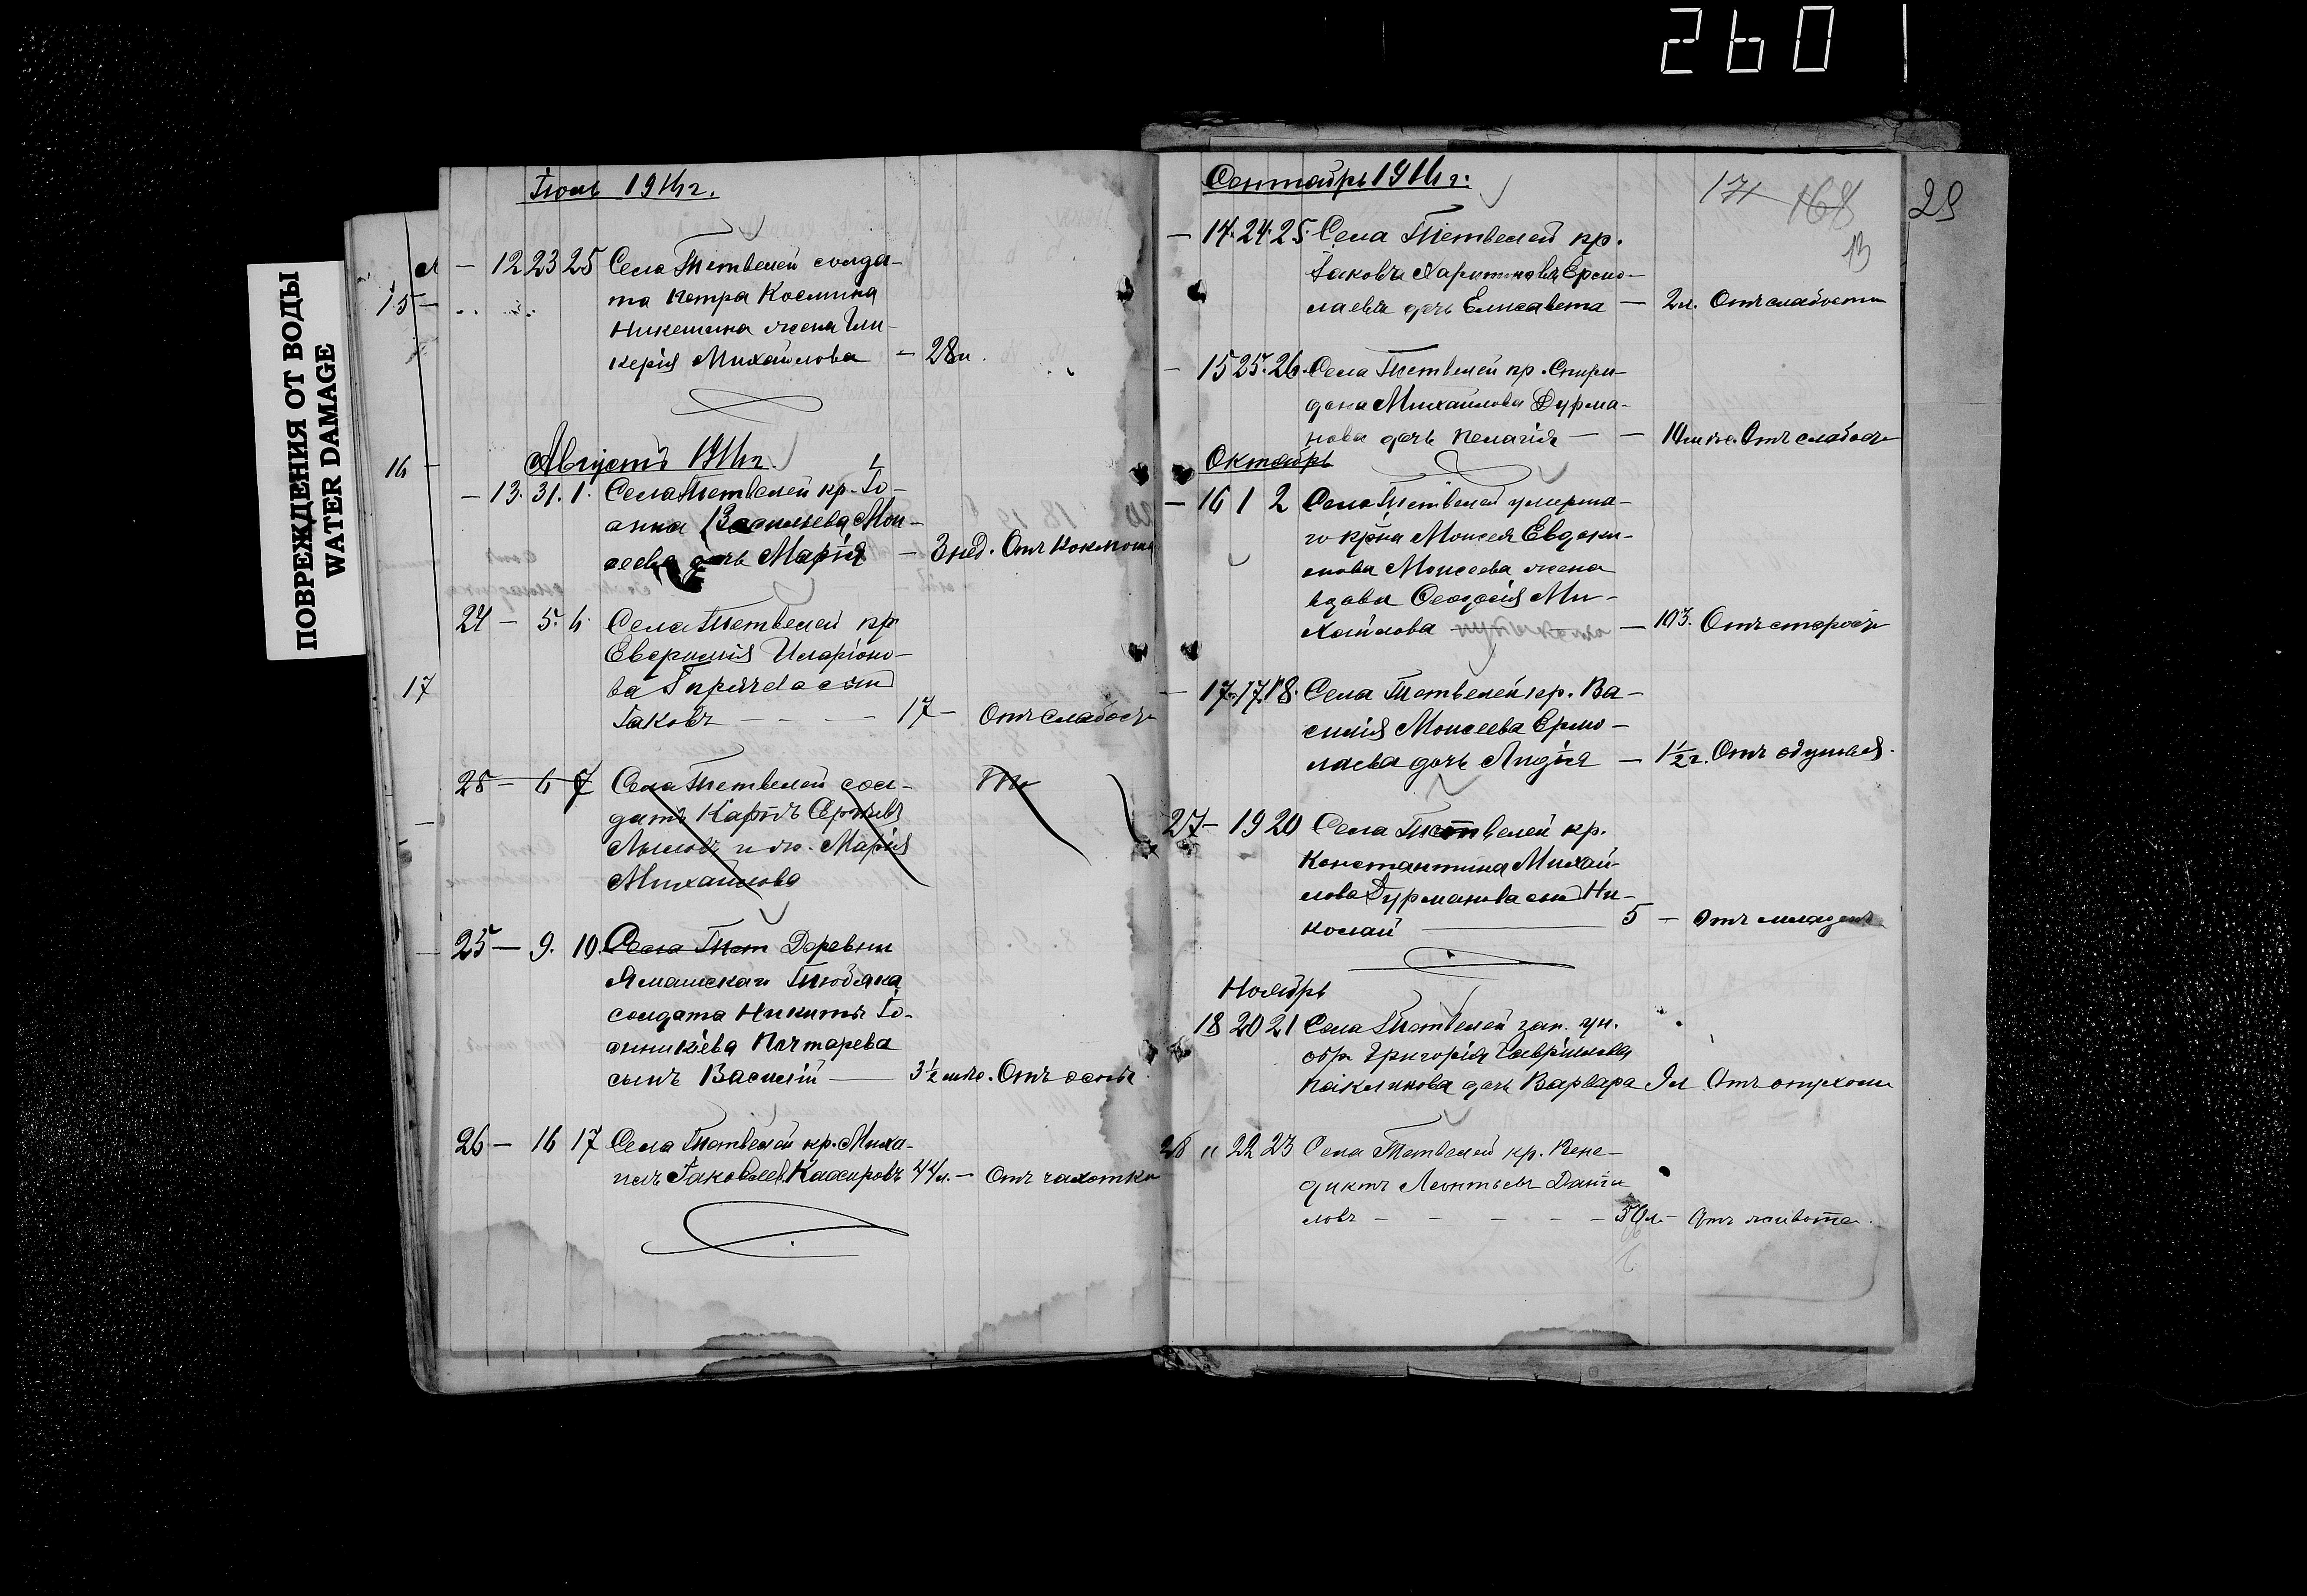 2601
ПОВРЕЖДЕНИЯ ОТ ВОДЫ
WATER DAMAGE
15 –
16 –
17
Іюль 1916 г.
– 12 23 25 Села Тетвелей солда-
та Петра Космина
Никешина жена Гли-
керія Михайлова – 28 л.
Августъ 1916 г.
– 13. 31. 1. Села Тетвелей кр. Іо-
анна Васильева Мои-
сеева дочь Марія – 3 нед. Отъ
24 – 5. 6. Села Тетвелей кр
Евѳимія Иларіоно-
ва сын
Іаковъ – – – – 17 – Отъ слабости
25 – 6 7 Села Тетвелей сол-
датъ Карпъ
и ж. Марія
Михайлова
25 – 9. 10. Села Тет Деревни
Ямашская
солдата Никиты Іо-
анникіева Почтарева
сынъ Василій – 3 1/2 мѣс. Отъ оспы
26 – 16 17 Села Тетвелей кр. Миха-
илъ Іаковлев. Кашировъ 44 л. – Отъ чахотки
Сентябрь 1916 г.
171 168
13
29
– 14. 24. 25. Села Тетвелей кр.
Іакова Харитонова Ермо-
лаева дочь Елисавета – 2 л. Отъ слабости
– 15 25. 26. Села Тетвелей кр. Спири-
дона Михайлова Дурма-
нова дочь Пелагія – – 10 мѣс. Отъ слабости
Октябрь
– 16 1 2 Села Тетвелей умерша-
го кр-на Моисея Евдоки-
мова Моисеева жена
вдова Ѳеодосія Ми-
хайлова – 103. Отъ старости
– 17. 17. 18. Села Тетвелей кр. Ва-
силія Моисеева Ермо-
лаева дочь Лидія – 1 1/2 г. Отъ
27 – 19 20 Села Тетвелей кр.
Константина Михай-
лова Дурманова сын Ни-
колай – 5 – Отъ младенч
Ноябрь
18 20 21 Села Тетвелей зап. ун.
Григорія Гаврилова
дочь Варвара 9 л Отъ опухоли
28 " 22 23 Села Тетвелей кр. Вене-
диктъ Леонтьевъ Дани
ловъ – – – – – 50 л – Отъ живота.